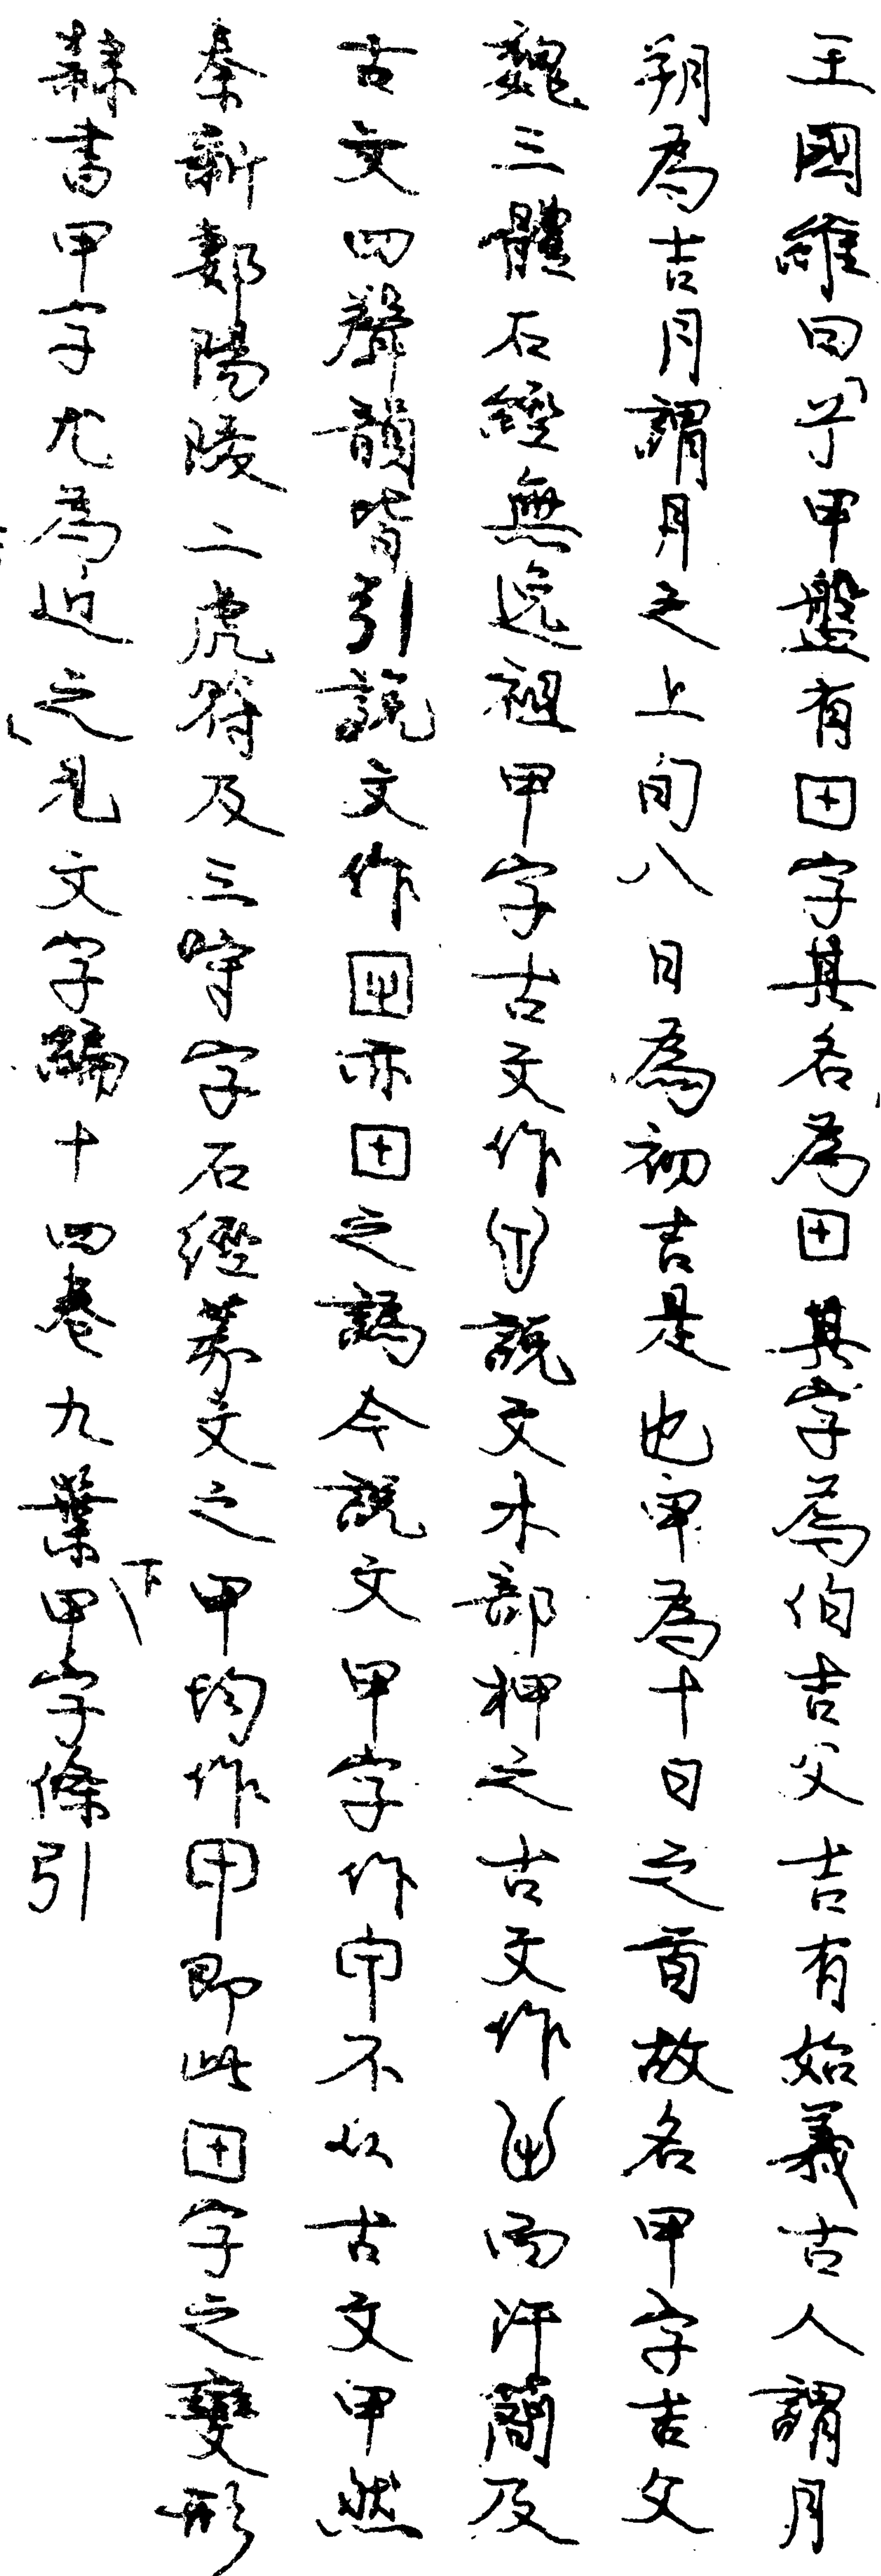 王國維曰「兮甲盤有田字其名為田其字為伯吉父吉有始義古人謂月
朔為吉月謂月之上旬八日為初吉是也甲為十日之首故名甲字吉父
魏三體石經無逸祖甲字古文作說文木部柙之古文作而汗簡及
古文四聲韻皆引說文作亦田之譌今說文甲字作不从古文甲然
秦新郪陽陵二虎符及三字石經篆文之甲均作甲即此田字之變形
隸書甲字尤為近之」見文字編十四卷九葉下甲字條引